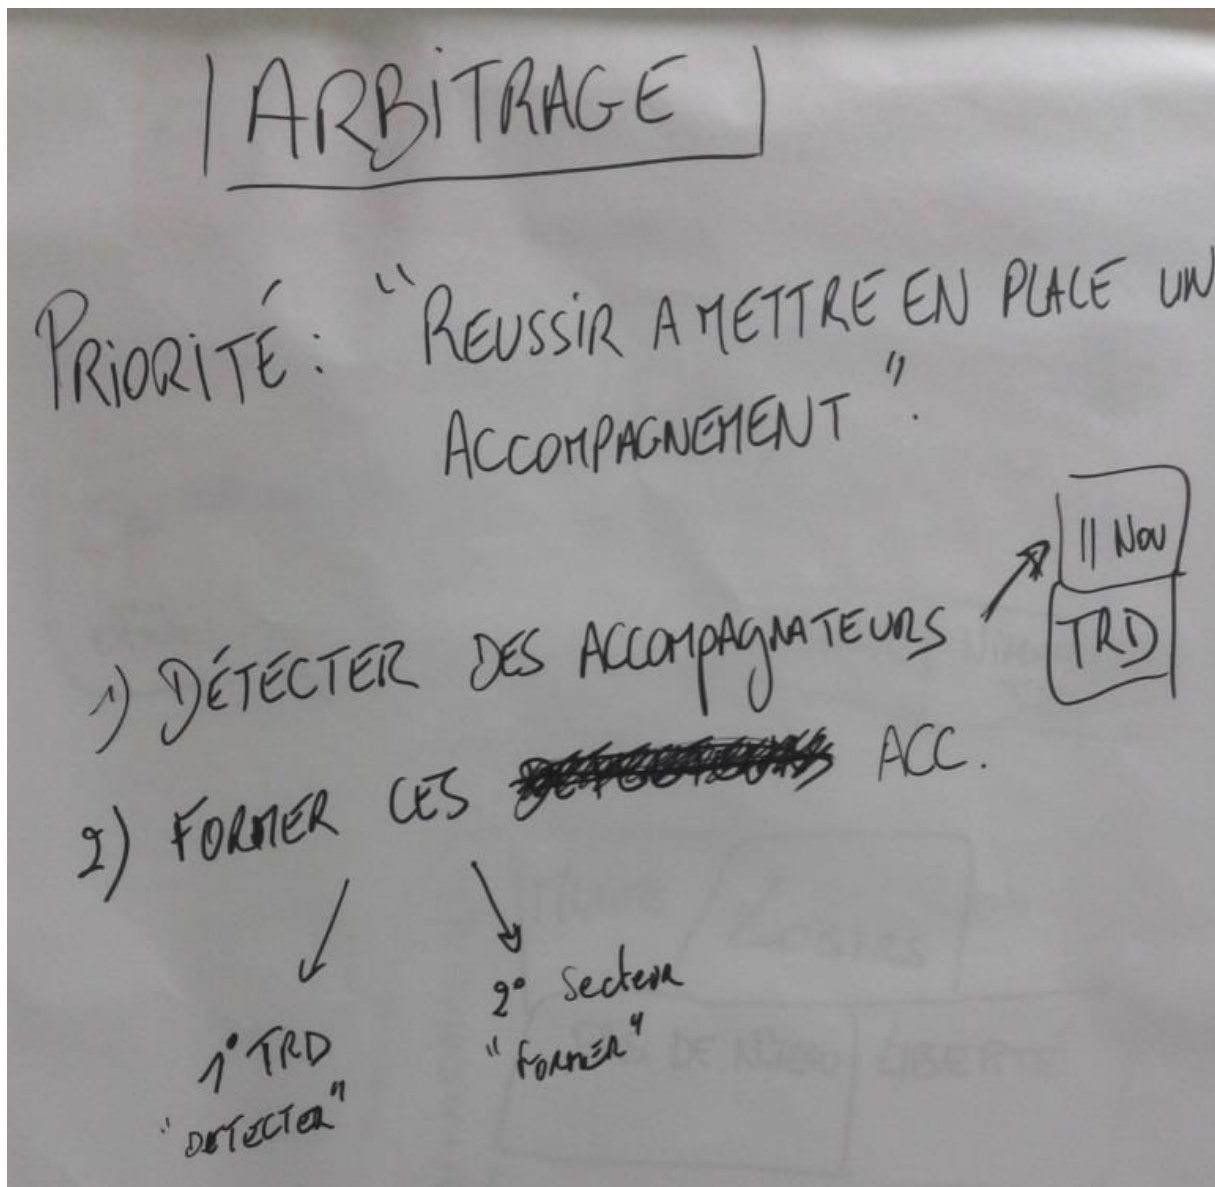 ARBITRAGE
PRIORITÉ : "REUSSIR A METTRE EN PLACE UN
ACCOMPAGNEMENT".
11 Nov
TRD
1) DÉTECTER DES ACCOMPAGNATEURS
2) FORMER CES ACC.
1° TRD
"DETECTER"
2° Secteur
"FORMER"
DE NIVEAU LIBERTÉ